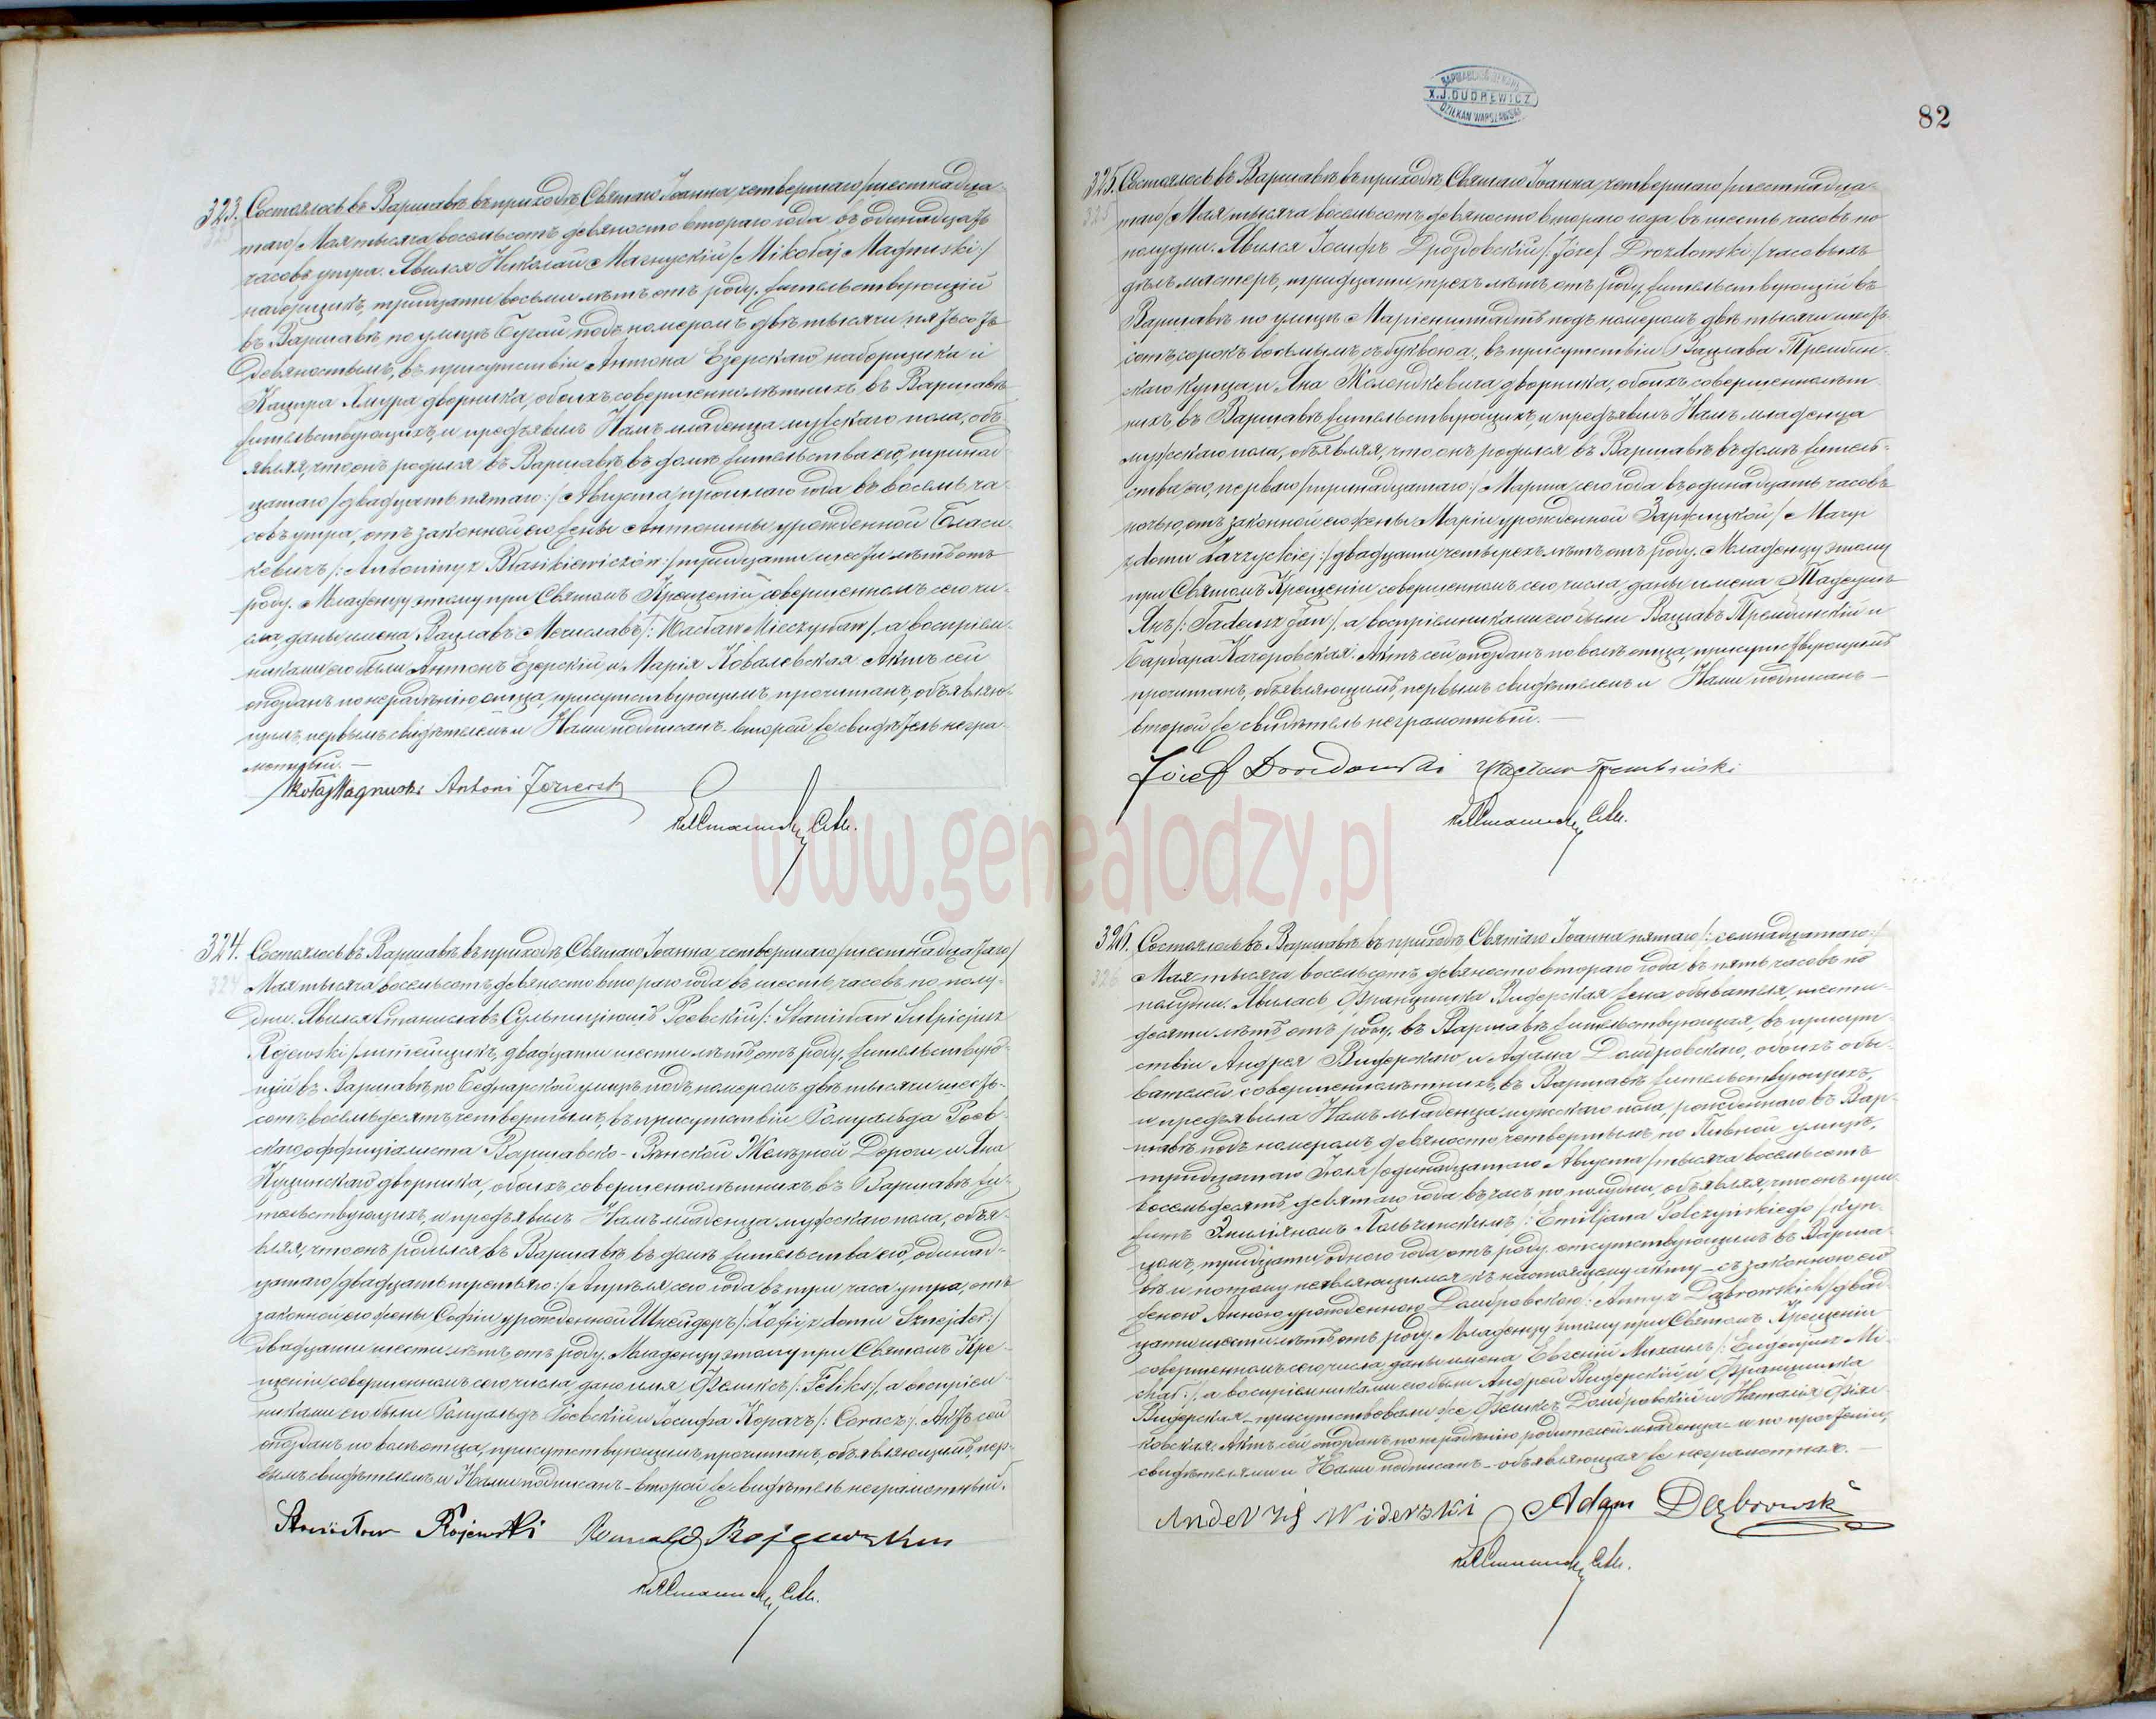 323. Состоялось въ Варшавѣ въ приходѣ Святаго Іоанна, четвертаго /шестнадца-
таго/ Мая тысяча восемьсотъ девяносто втораго года въ одинадцать
часовъ утра. Явился Николай Магнускій /: Mikołaj Magnuski :/
наборщикъ, тридцати восьми лѣтъ отъ роду, жительствующій
въ Варшавѣ по улицѣ Бугай подъ номеромъ двѣ тысячи пятьсотъ
девяностымъ, въ присутствіи Антона Езерскаго наборщика и
дворника, обоихъ совершеннолѣтнихъ, въ Варшавѣ
жительствующихъ, и предъявилъ Намъ младенца мужскаго пола, объ-
являя, что онъ родился въ Варшавѣ въ домѣ жительства его, тринад-
цатаго /двадцать пятаго:/ Августа прошлаго года въ восемь ча-
совъ утра, отъ законной его жены Антонины урожденной Бласи-
кевичъ /: Antoniny z Błasikiewiczów :/ тридцати шести лѣтъ отъ
роду. Младенцу этому при Святомъ Крещеніи совершенномъ сего чи-
сла, даны имена Вацлавъ Мечиславъ /: Wacław Mieczysław /, а воспріем-
никами его были Антонъ Езерскій и Марія Ковалевская. Актъ сей
опозданъ по нерадѣнію отца, присутствующимъ прочитанъ, объявляю-
щимъ, первымъ свидѣтелемъ и Нами подписанъ второй же свидѣтель негра-
мотный. —
Mikołaj Magnuski Antoni Jezierski
324. Состоялось въ Варшавѣ въ приходѣ Святаго Іоанна, четвертаго /шестнадцатаго/
Мая тысяча восемьсотъ девяносто втораго года въ шесть часовъ по полу-
дни. Явился Станиславъ Сульпиціюшъ Роевскій /: Stanisław Sulpicjusz
Rojewski / литейщикъ, двадцати шести лѣтъ отъ роду, жительствую-
щій въ Варшавѣ по Беднарской улицѣ подъ номеромъ двѣ тысячи шесть-
сотъ восемьдесятъ четвертымъ, въ присутствіи Ромуальда Роев-
скаго оффиціалиста Варшавско-Вѣнской Желѣзной Дороги и Яна
дворника, обоихъ совершеннолѣтнихъ, въ Варшавѣ жи-
тельствующихъ, и предъявилъ Намъ младенца мужскаго пола, объя-
вляя, что онъ родился въ Варшавѣ въ домѣ жительства его, одинад-
цатаго /двадцать третьяго:/ Апрѣля сего года въ три часа утра, отъ
законной его жены Софіи урожденной Шнейдеръ /: Zofii z domu Sznejder :/
двадцати шести лѣтъ отъ роду. Младенцу этому при Святомъ Кре-
щеніи совершенномъ сего числа, дано имя Феликсъ /: Feliks :/, а воспріем-
никами его были Ромуальдъ Роевскій и Іосифа Корачъ /: Coracz :/. Актъ сей
опозданъ по волѣ отца, присутствующимъ прочитанъ, объявляющимъ, пер-
вымъ свидѣтелемъ и Нами подписанъ – второй же свидѣтель неграмотный.
Stanisław Rojewski Romuald Rojewski
ВАРШАВСКІЙ ДЕКАНЪ
X. J. DUDREWICZ
DZIEKAN WARSZAWSKI
82
325. Состоялось въ Варшавѣ въ приходѣ Святаго Іоанна, четвертаго /шестнадца-
таго/ Мая тысяча восемьсотъ девяносто втораго года въ шесть часовъ по
полудни. Явился Іосифъ Дроздовскій /: Józef Drozdowski :/ часовыхъ
дѣлъ мастеръ, тридцати трехъ лѣтъ отъ роду, жительствующій въ
Варшавѣ по улицѣ Маріенштадтъ подъ номеромъ двѣ тысячи шесть-
сотъ сорокъ восьмымъ съ буквою а, въ присутствіи Вацлава Трембин-
скаго купца и Яна дворника, обоихъ совершеннолѣт-
нихъ, въ Варшавѣ жительствующихъ, и предъявилъ Намъ младенца
мужскаго пола, объявляя, что онъ родился въ Варшавѣ въ домѣ житель-
ства его, перваго /тринадцатаго:/ Марта сего года въ одинадцать часовъ
ночью, отъ законной его жены Маріи урожденной Заржицкой /: Maryi
z domu Zarzyckiej :/ двадцати четырехъ лѣтъ отъ роду. Младенцу этому
при Святомъ Крещеніи совершенномъ сего числа, даны имена Тадеушъ
Янъ /: Tadeusz Jan /, а воспріемниками его были Вацлавъ Трембинскій и
Барбара Качоровская. Актъ сей опозданъ по волѣ отца, присутствующимъ
прочитанъ, объявляющимъ, первымъ свидѣтелемъ и Нами подписанъ —
второй же свидѣтель неграмотный. —
Józef Drozdowski Wacław Trembiński
326. Состоялось въ Варшавѣ въ приходѣ Святаго Іоанна пятаго /: семнадцатаго:/
Мая тысяча восемьсотъ девяносто втораго года въ пять часовъ по
полудни. Явилась Францишка Видерская жена обывателя, шести-
десяти лѣтъ отъ роду, въ Варшавѣ жительствующая, въ присут-
ствіи Андрея Видерскаго и Адама Домбровскаго, обоихъ обы-
вателей совершеннолѣтнихъ, въ Варшавѣ жительствующихъ,
и предъявила Намъ младенца мужскаго пола, рожденнаго въ Вар-
шавѣ подъ номеромъ девяносто четвертымъ по Пивной улицѣ,
тридцатаго Іюля /одинадцатаго Августа/ тысяча восемьсотъ
восемьдесятъ девятаго года въ часъ по полудни, объявляя, что онъ при-
житъ Эмиліяномъ Польчинскимъ /: Emiljana Polczyńskiego / куп-
цомъ, тридцати одного года отъ роду, отсутствующимъ въ Варша-
вѣ и потому неявляющимся къ настоящему акту – съ законною его
женою Анною урожденною Домбровскою /: Anny z Dąbrowskich / двад-
цати шести лѣтъ отъ роду. Младенцу этому при Святомъ Крещеніи
совершенномъ сего числа, даны имена Евгеній Михаилъ /: Eugenjusz Mi-
chał :/, а воспріемниками его были Андрей Видерскій и Францишка
Видерская – присутствовали же Феликсъ Домбровскій и Наталія
Актъ сей опозданъ по нерадѣнію родителей младенца – и по прочтеніи,
свидѣтелями и Нами подписанъ – объявляющая же неграмотная. —
Widerski Adam Dąbrowski
www.genealodzy.pl